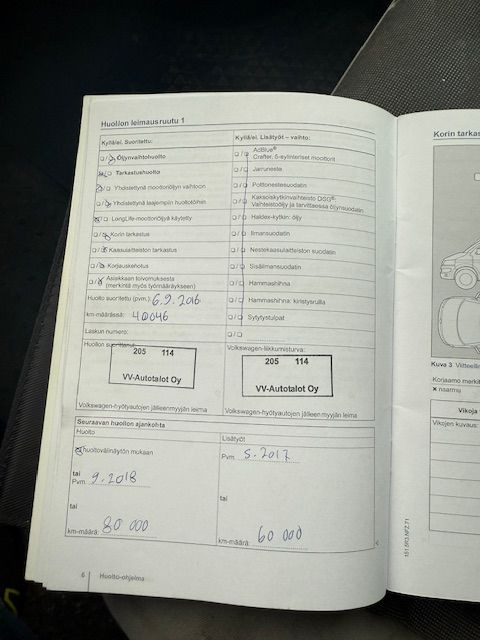 Huollon leimausruutu 1
Kyllä/ei. Suoritettu:
Kyllä/ei. Lisätyöt – vaihto:
Öljynvaihtohuolto
AdBlue®
Crafter, 5-sylinteriset moottorit
Tarkastushuolto
Jarruneste
Yhdistettynä moottoriöljyn vaihtoon
Polttonestesuodatin
Yhdistettynä laajempiin huoltotöihin
Kaksoiskytkinvaihteisto DSG®:
Vaihteistoöljy ja tarvittaessa öljynsuodatin
LongLife-moottoriöljyä käytetty
Haldex-kytkin: öljy
Korin tarkastus
Ilmansuodatin
Kaasulaitteiston tarkastus
Nestekaasulaitteiston suodatin
Korjauskehotus
Sisäilmansuodatin
Asiakkaan toivomuksesta
(merkintä myös työmääräykseen)
Hammashihna
Huolto suoritettu (pvm.): 6.9.2016
Hammashihna: kiristysrulla
km-määrässä: 40046
Sytytystulpat
Laskun numero:
Huollon suorittanut:
Volkswagen-liikkumisturva:
205 114
VV-Autotalot Oy
205 114
VV-Autotalot Oy
Volkswagen-hyötyautojen jälleenmyyjän leima
Volkswagen-hyötyautojen jälleenmyyjän leima
Seuraavan huollon ajankohta
Huolto
Lisätyöt
huoltovälinäytön mukaan
Pvm. 5.2017
tai
Pvm. 9.2018
tai
tai
km-määrä: 80 000
km-määrä: 60 000
6 Huolto-ohjelma
Korin tarkas
Kuva 3
Korjaamo merkit
× naarmu
Vikoja
Vikojen kuvaus: